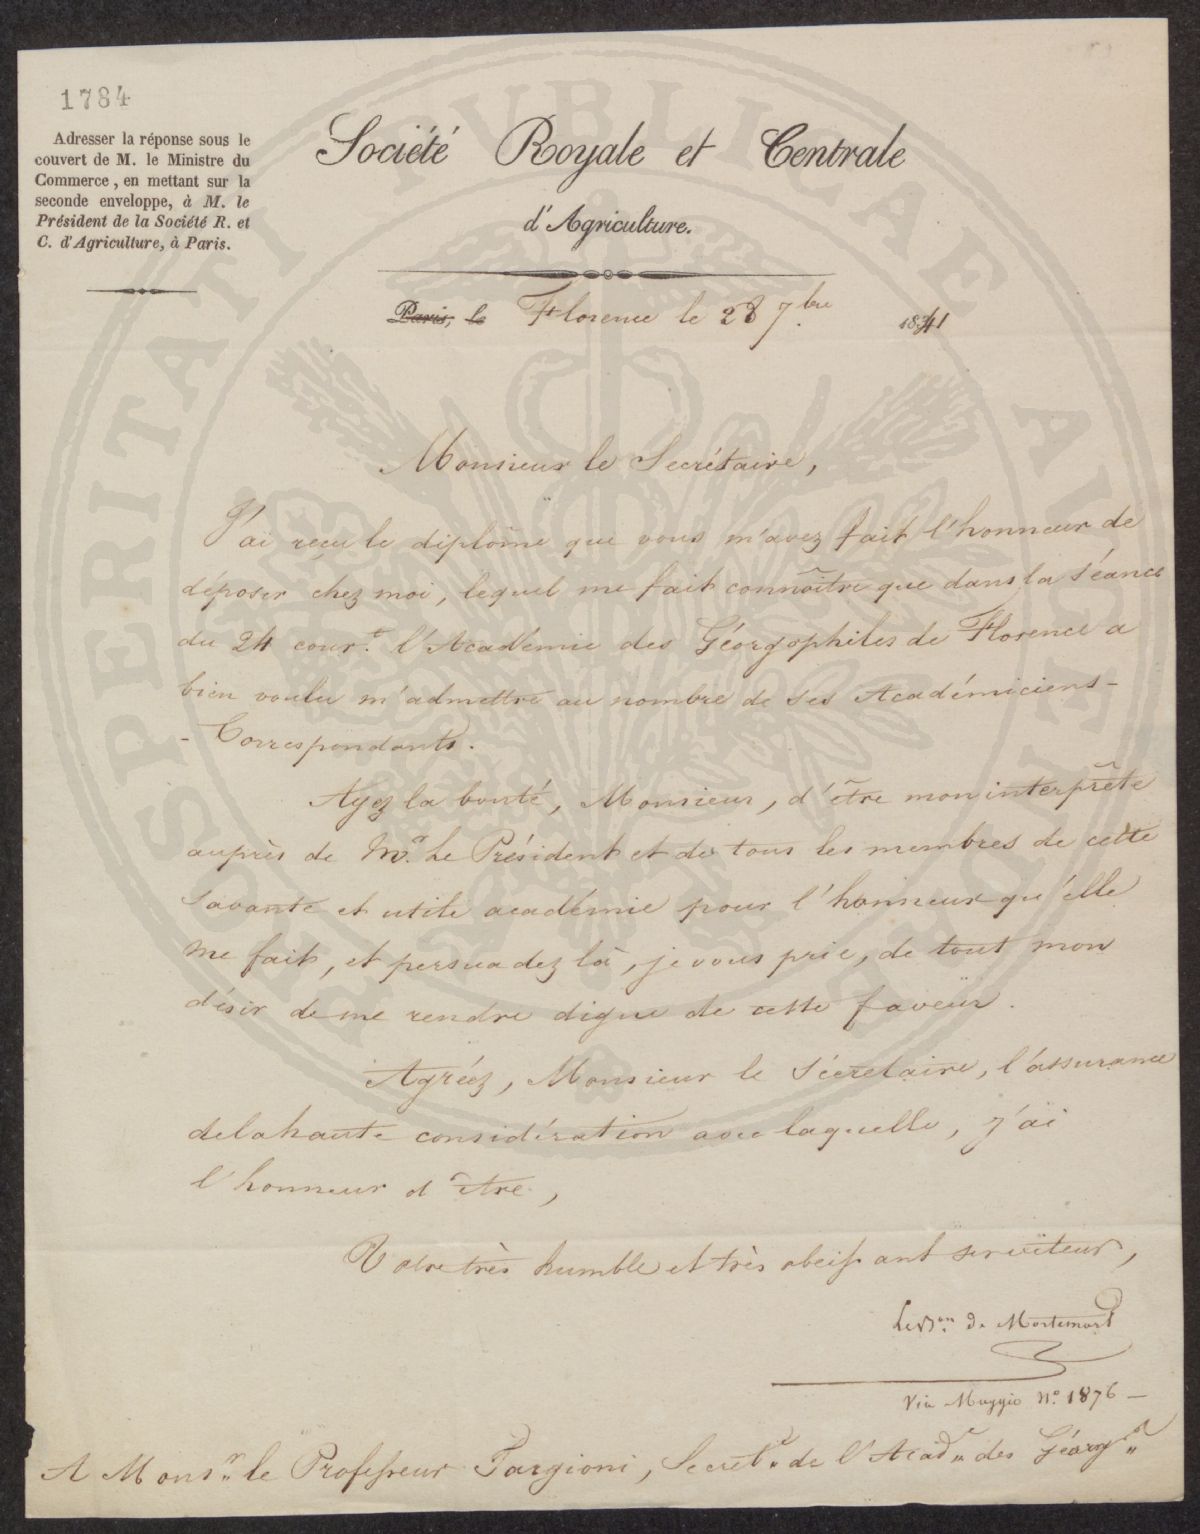 1784
Adresser la réponse sous le
couvert de M. le Ministre du
Commerce, en mettant sur la
seconde enveloppe, à M. le
Président de la Société R. et
C. d'Agriculture, à Paris.
Société Royale et Centrale
d'Agriculture.
Paris, le Florence le 28 7.bre 1841
Monsieur le Secrétaire,
J'ai reçu le diplôme que vous m'avez fait l'honneur de
déposer chez moi, lequel me fait connoître que dans la séance
du 24 cour.t l'Académie des Géorgophiles de Florence a
bien voulu m'admettre au nombre de ses Académiciens-
-Correspondants.
Ayez la bonté, Monsieur, d'être mon interprête
auprès de Mr. Le Président et de tous les membres de cette
savante et utile académie pour l'honneur qu'elle
me fait, et persuadez là, je vous prie, de tout mon
désir de me rendre digne de cette faveur.
Agréez, Monsieur le Sécretaire, l'assurance
de la haute considération avec laquelle, j'ai
l'honneur d'être,
Votre très humble et très obeissant serviteur,
Le Bon. de Mortemart
Via Maggio N.o 1876 –
A Monsr. le Professeur Targioni, Secret.r de l'Acad. des Géorg.
PROSPERITATI PUBLICAE AUGENDAE